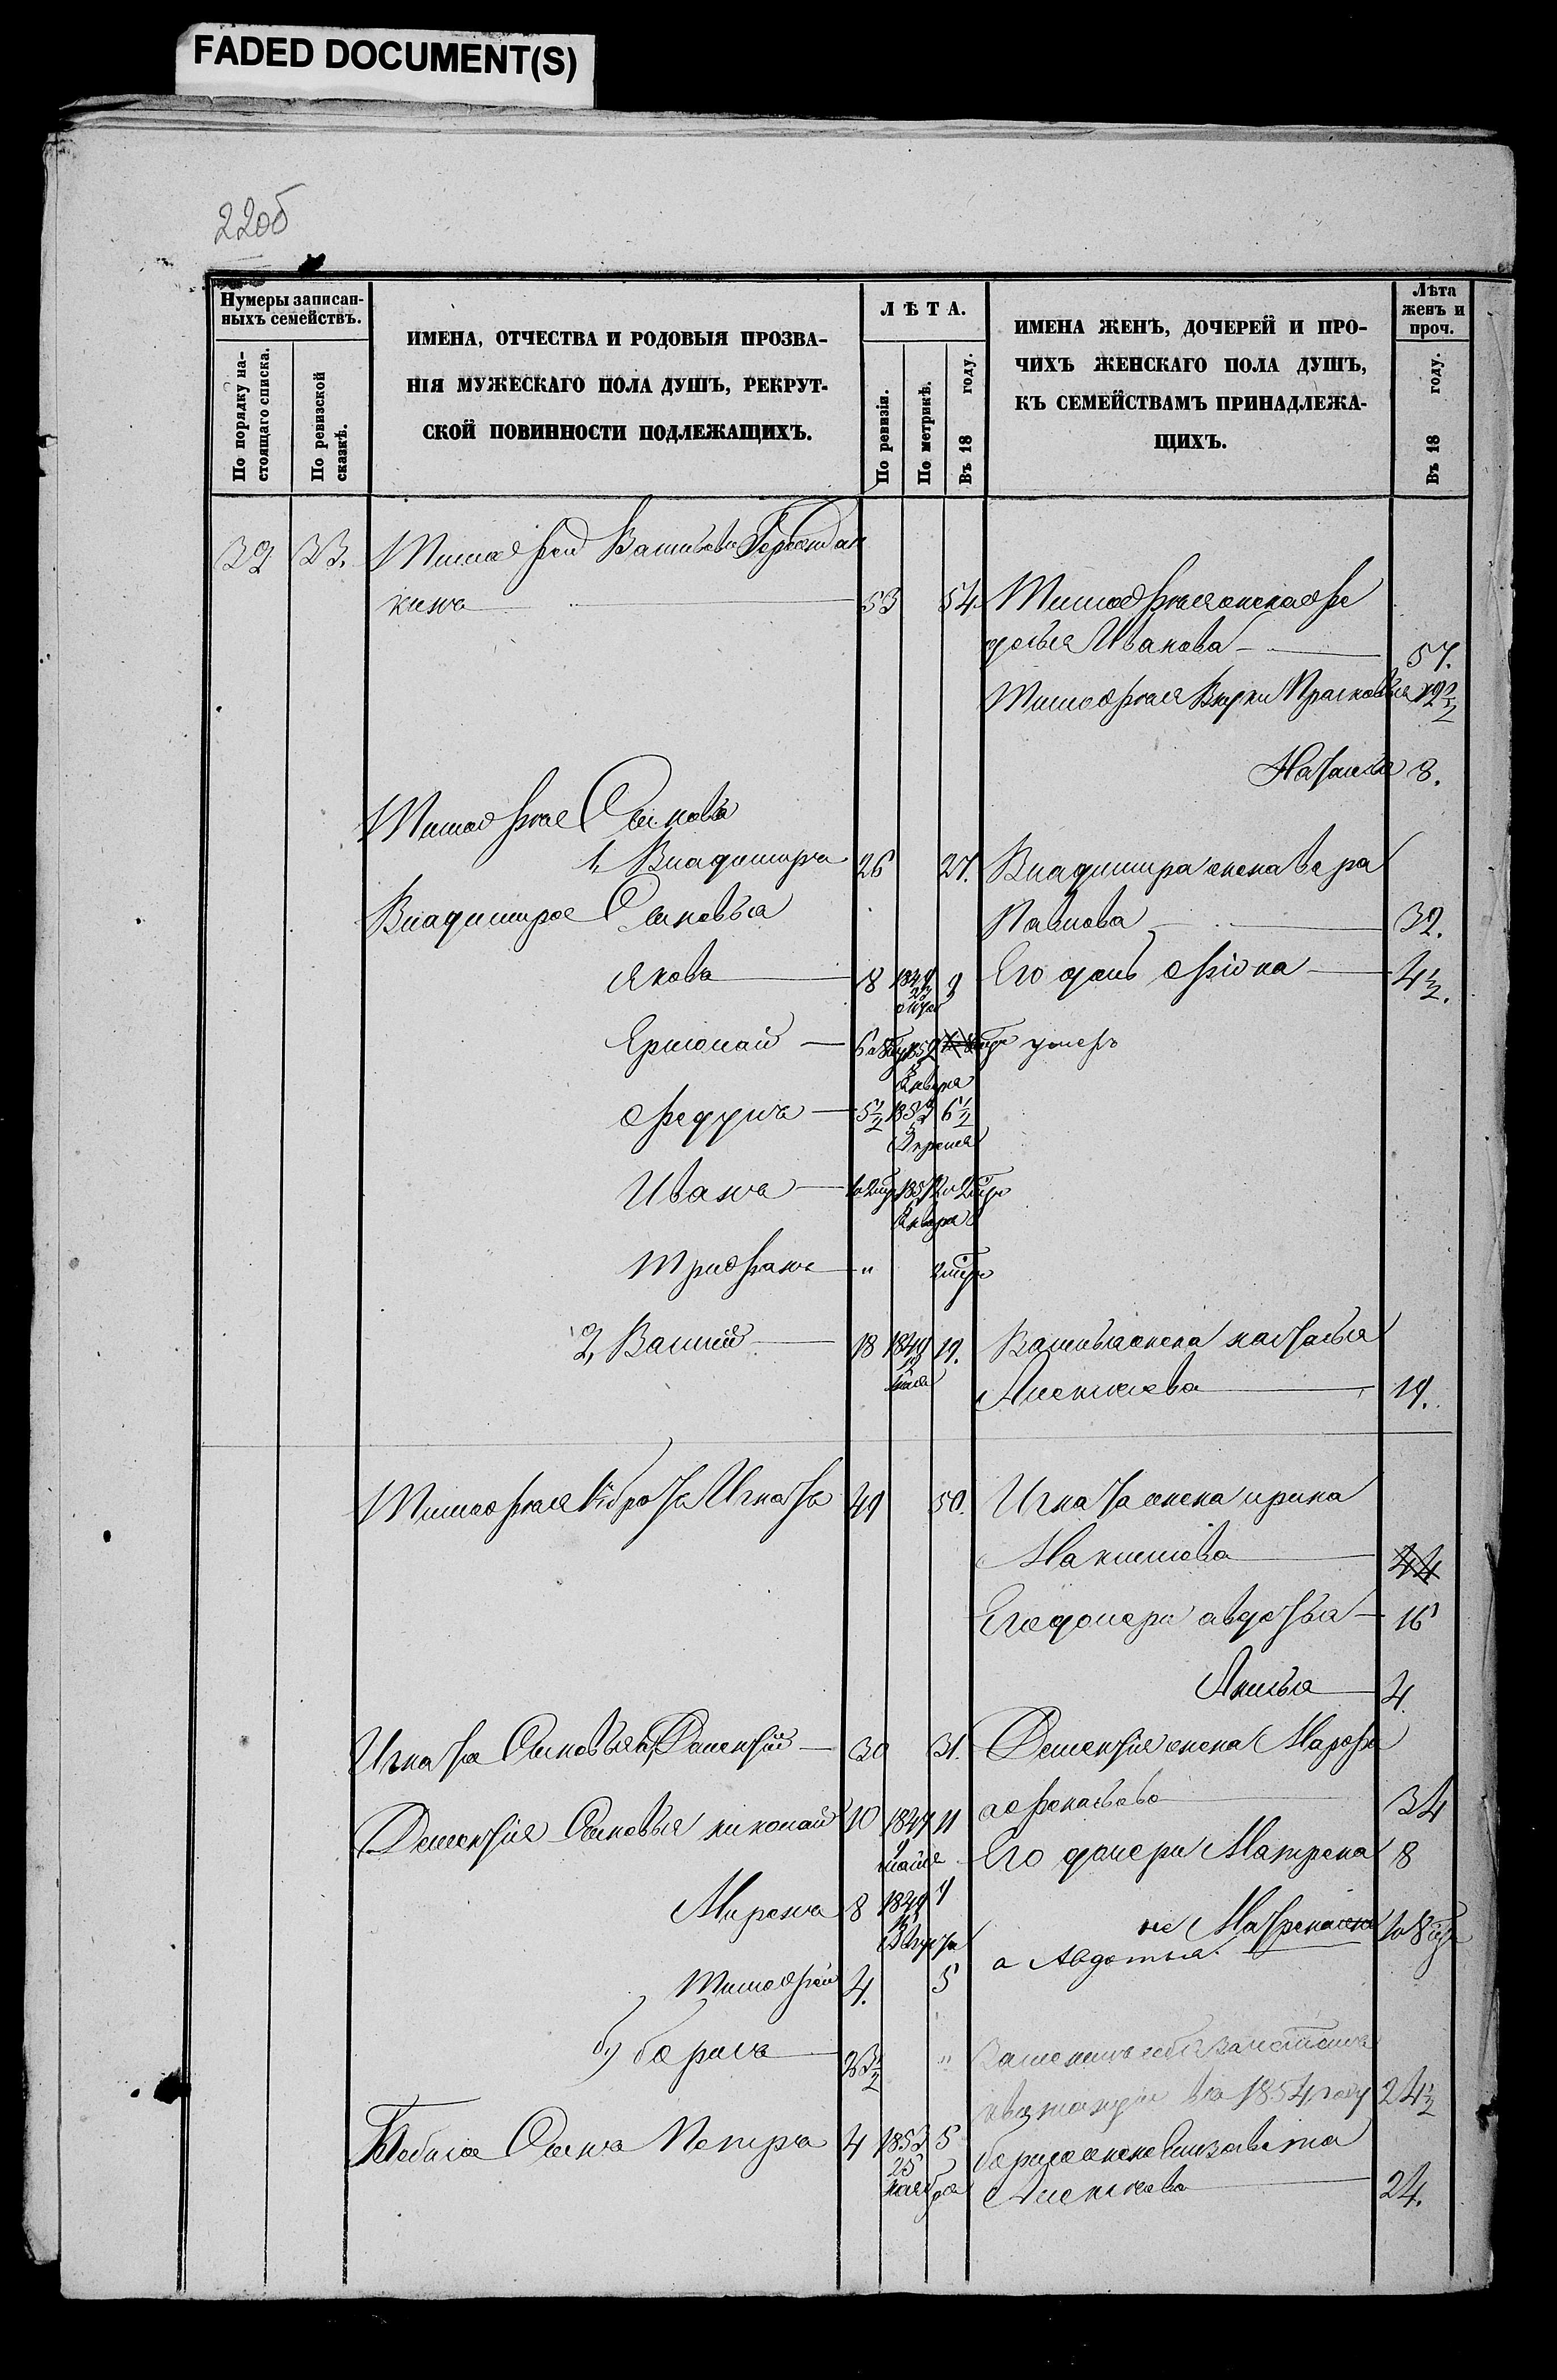 FADED DOCUMENT(S)
22об
Нумеры записан-
ныхъ семействъ.
По порядку на-
стоящаго списка.
По ревизской
сказкѣ.
ИМЕНА, ОТЧЕСТВА И РОДОВЫЯ ПРОЗВА-
НІЯ МУЖЕСКАГО ПОЛА ДУШЪ, РЕКРУТ-
СКОЙ ПОВИННОСТИ ПОДЛЕЖАЩИХЪ.
ЛѢТА.
По ревизіи.
По метрикѣ.
Въ 18 году.
ИМЕНА ЖЕНЪ, ДОЧЕРЕЙ И ПРО-
ЧИХЪ ЖЕНСКАГО ПОЛА ДУШЪ,
КЪ СЕМЕЙСТВАМЪ ПРИНАДЛЕЖА-
ЩИХЪ.
Лѣта
женъ и
проч.
Въ 18 году.
32 33. Тимофей Васильевъ
кинъ 53 54 Тимофѣя жена Фе
досья Иванова 57.
Тимофѣя Внуки Прасковья
Наталья 8.
Тимофѣя Сыновья
1, Владимиръ 26 27. Владимира жена Вера
Владимира Сыновья Павлова 32.
Яковъ 8 9 Его дочь Фіона 4½.
Ермолай умеръ
Января
Федулъ 5½ 6½
Апреля
Иванъ
Января
Трифанъ " 
2, Василій 18 1849 19. Василья жена настасья
Алексеева 19.
Тимофѣя братъ Игнатъ 49 50. Игната жена ирина
Максимова 44
Его дочери авдотья 16
Акилина 4.
Игната Сыновья Дементій 30 31. Дементія жена Марфа
афонасьева 34
Дементія Сыновья николай 10 1847 11
Его дочери Матрена 8
Миронъ 8 1849 9
Августа
не Матрена
а Авдотья.
Тимофей 4. 5
б) борисъ 23½ "
квитанціи въ 1854 году 24½
Сынъ Петръ 4 1853 5 бориса жена Елизавета
25
ноября Алексеева 24.